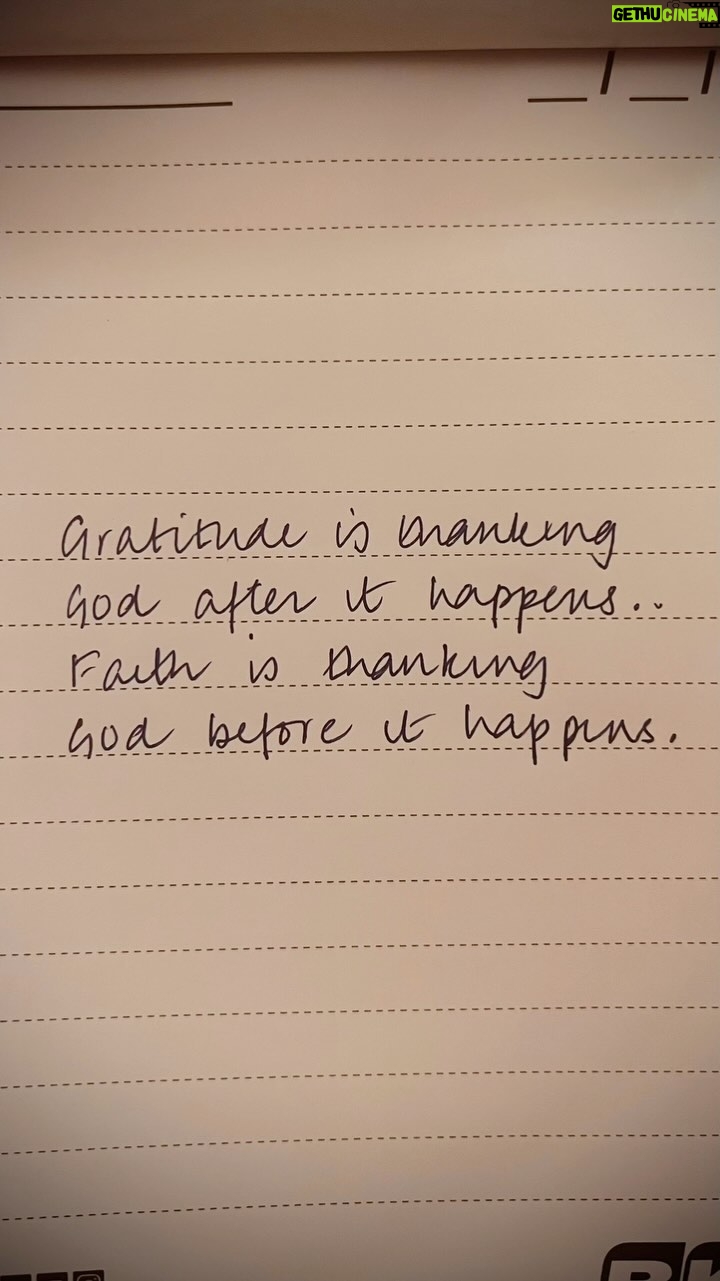 GETHUCINEMA
Gratitude is thanking
God after it happens..
Faith is thanking
God before it happens.